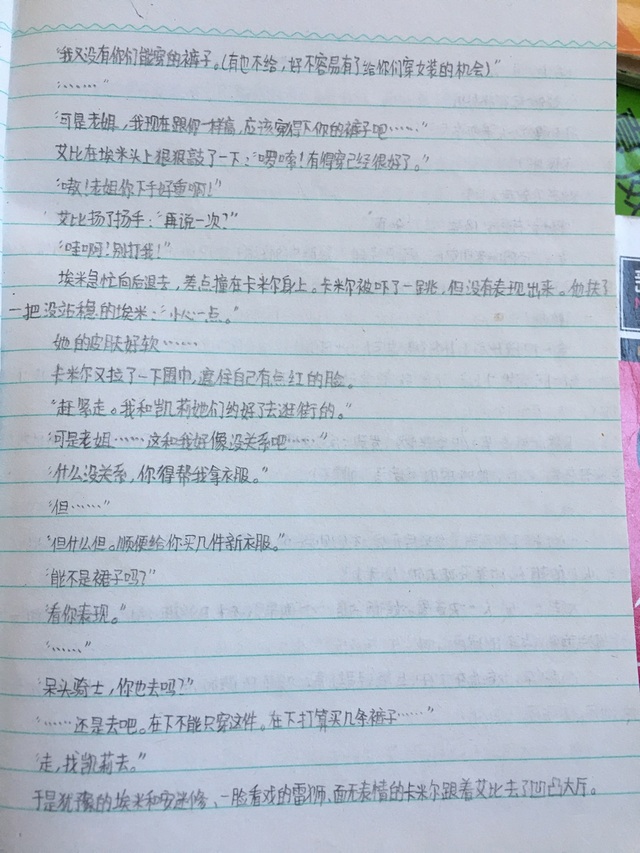 “我又没有你们能穿的裤子。(有也不给，好不容易有了给你们穿女装的机会)”
“……”
“可是老姐，我现在跟你一样高，应该穿得下你的裤子吧……”
艾比在埃米头上狠狠敲了一下：“啰嗦！有得穿已经很好了。”
“嗷！老姐你下手好重啊！”
艾比扬了扬手：“再说一次？”
“哇啊！别打我！”
埃米急忙向后退去，差点撞在卡米尔身上。卡米尔被吓了一跳，但没有表现出来。他扶了
一把没站稳的埃米：“小心一点。”
她的皮肤好软……
卡米尔又拉了一下围巾，遮住自己有点红的脸。
“赶紧走。我和凯莉她们约好了去逛街的。”
“可是老姐……这和我好像没关系吧……”
“什么没关系，你得帮我拿衣服。”
“但……”
“但什么但。顺便给你买几件新衣服。”
“能不是裙子吗？”
“看你表现。”
“……”
“呆头骑士，你也去吗？”
“……还是去吧。在下不能只穿这件。在下打算买几条裤子……”
“走，找凯莉去。”
于是犹豫的埃米和安迷修、一脸看戏的雷狮、面无表情的卡米尔跟着艾比去了凹凸大厅。